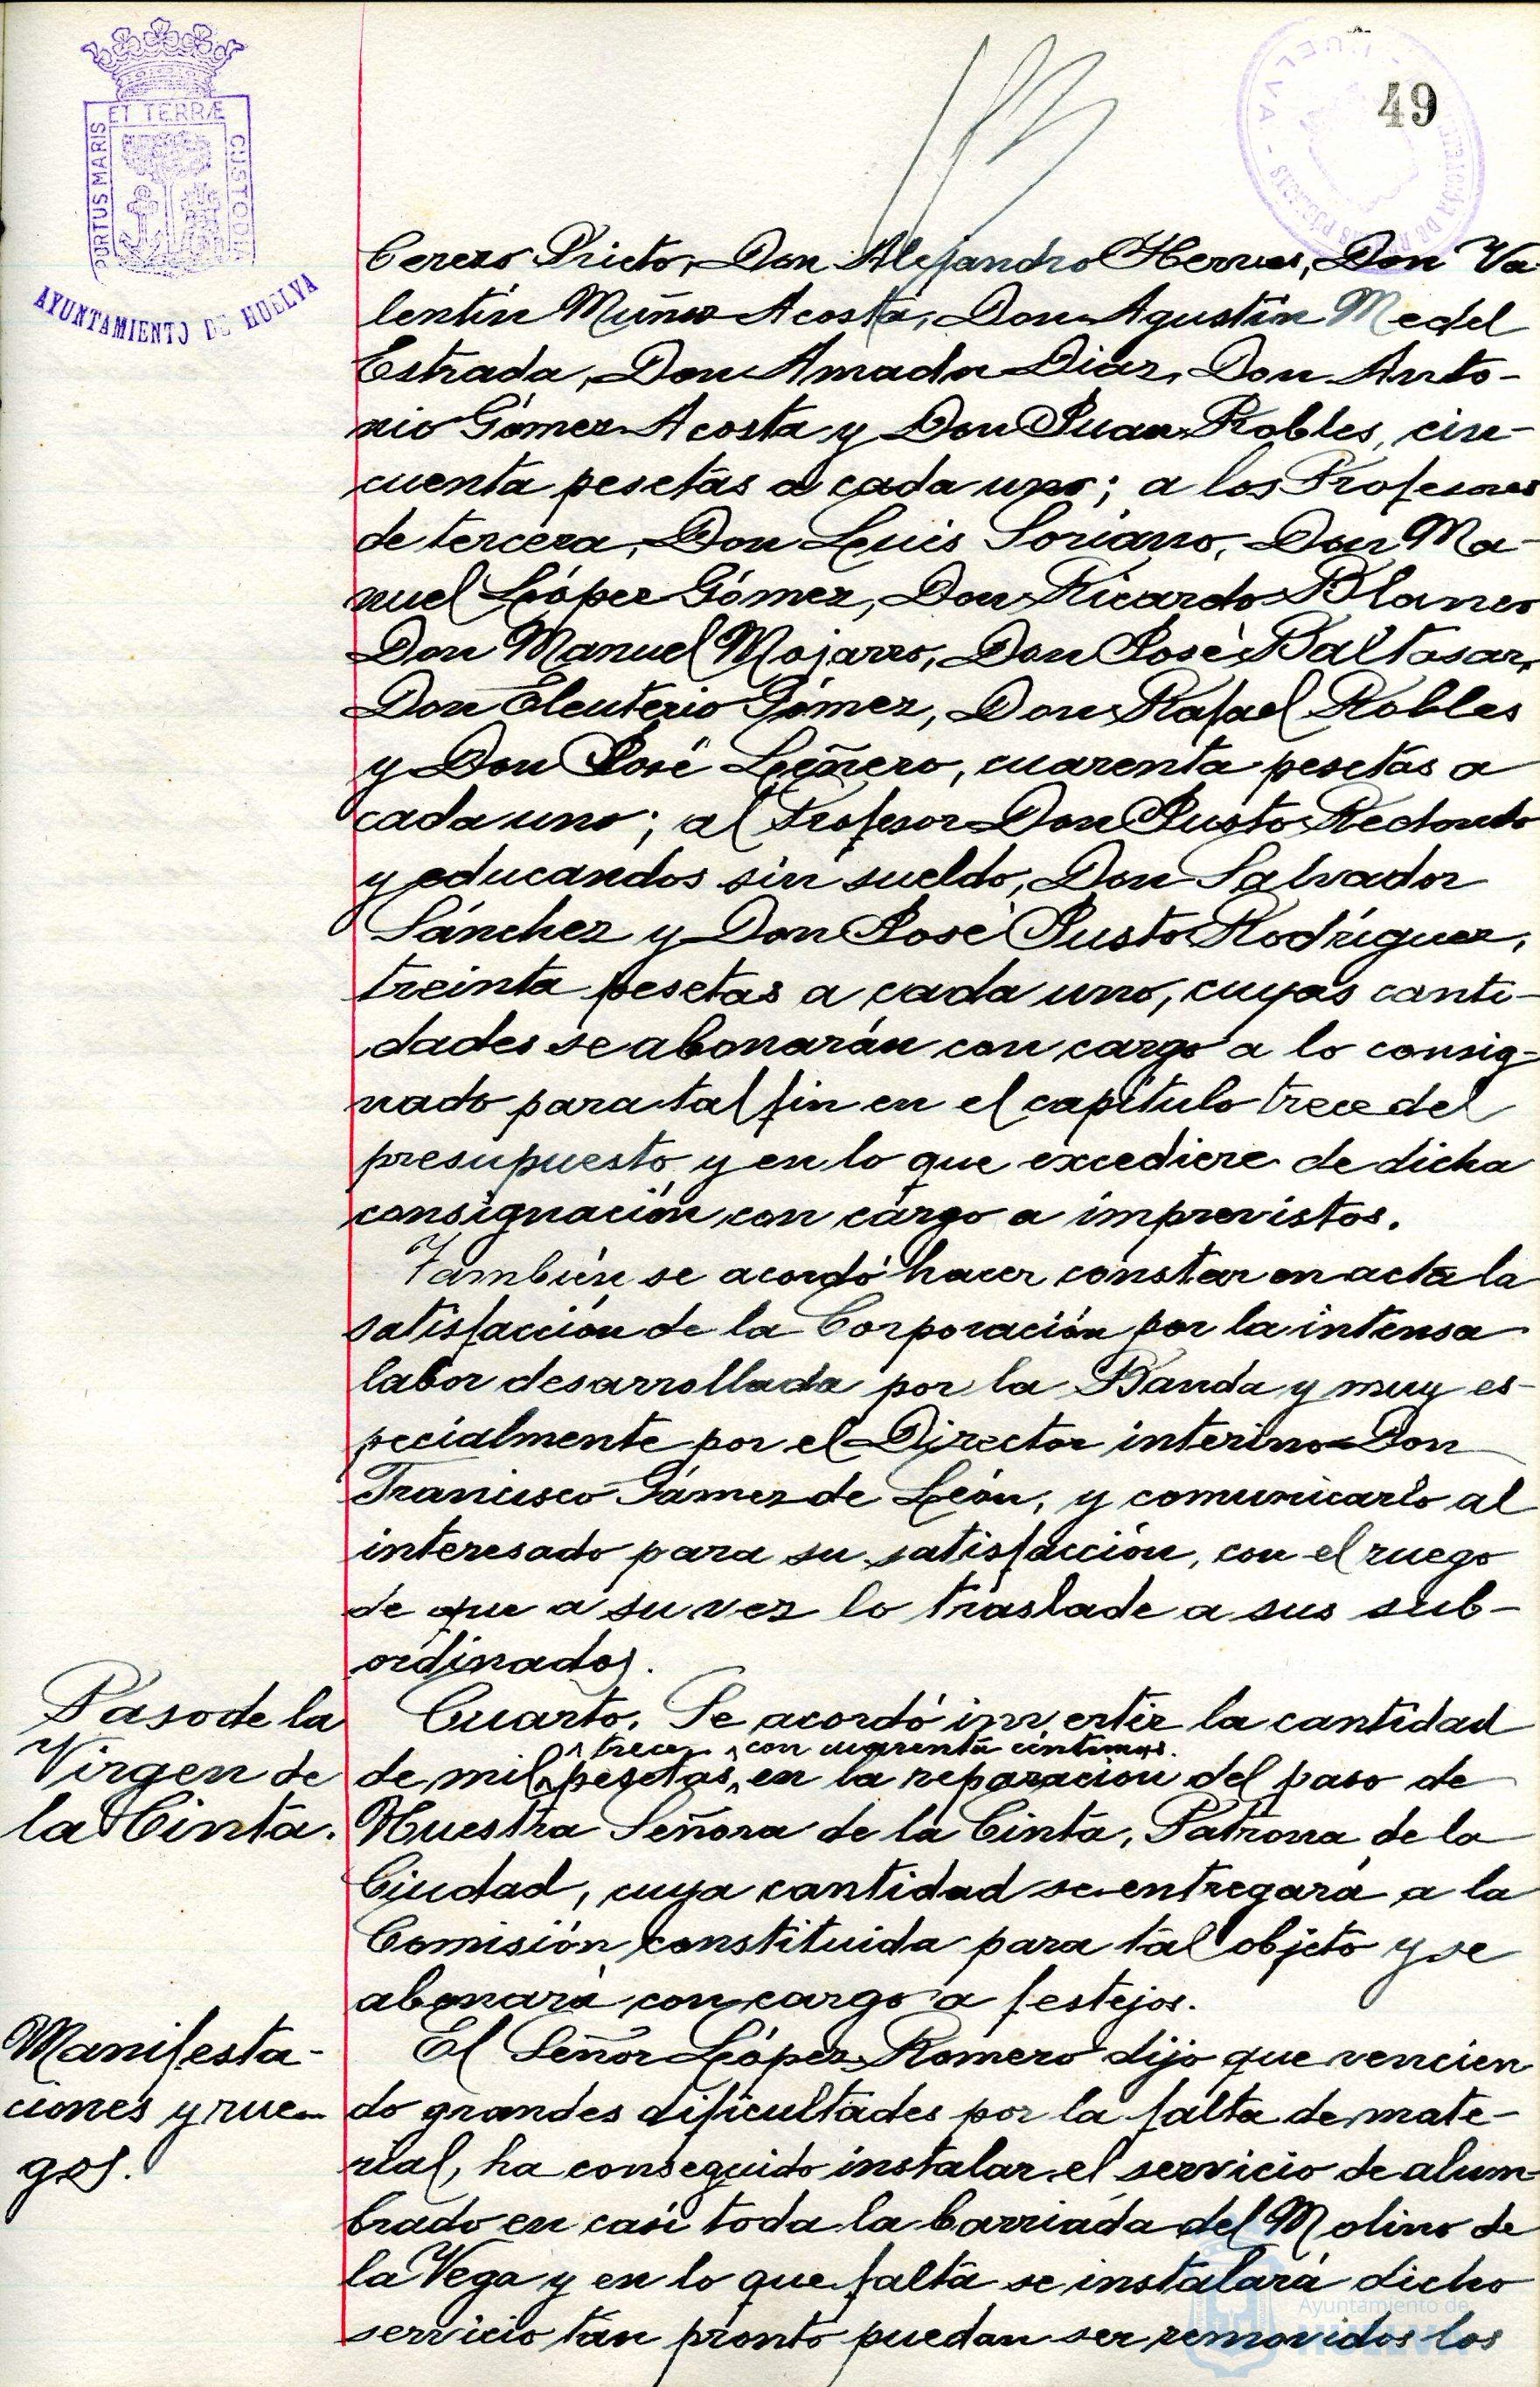 49
PORTUS MARIS ET TERRÆ CUSTODIA
AYUNTAMIENTO DE HUELVA
Cerezo Prieto, Don Alejandro Hervas, Don Va-
lentín Muñoz Acosta, Don Agustín Medel
Estrada, Don Amador Diaz, Don Anto-
nio Gómez Acosta y Don Juan Robles, cin-
cuenta pesetas a cada uno; a los Profesores
de tercera, Don Luis Soriano, Don Ma-
nuel López Gómez, Don Ricardo Blanco
Don Manuel Mojarro, Don José Baltasar,
Don Eleuterio Gómez, Don Rafael Robles
y Don José Leñero, cuarenta pesetas a
cada uno; al Profesor Don Justo Redondo
y educandos sin sueldo, Don Salvador
Sánchez y Don José Justo Rodríguez,
treinta pesetas a cada uno, cuyas canti-
dades se abonarán con cargo a lo consig-
nado para tal fin en el capítulo trece del
presupuesto y en lo que excediere de dicha
consignación con cargo a imprevistos.
También se acordó hacer constar en acta la
satisfacción de la Corporación por la intensa
labor desarrollada por la Banda y muy es-
pecialmente por el Director interino Don
Francisco Gámez de León, y comunicarlo al
interesado para su satisfacción, con el ruego
de que a su vez lo traslade a sus sub-
ordinados.
Paso de la
Virgen de
la Cinta.
Cuarto. Se acordó invertir la cantidad
trece con cuarenta céntimos.
de mil pesetas en la reparación del paso de
Nuestra Señora de la Cinta, Patrona de la
Ciudad, cuya cantidad se entregará a la
Comisión constituida para tal objeto y se
abonará con cargo a festejos.
Manifesta-
ciones y rue-
gos.
El Señor López Romero dijo que vencien
do grandes dificultades por la falta de mate-
rial, ha conseguido instalar el servicio de alum-
brado en casi toda la barriada del Molino de
la Vega y en lo que falta se instalará dicho
servicio tan pronto puedan ser removidos los
Ayuntamiento de
HUELVA